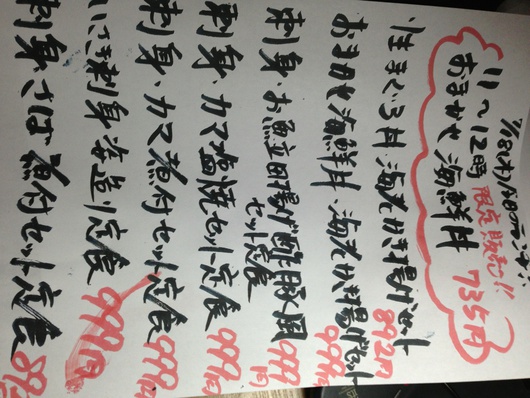 11/18(水)今日のランチ!
11〜12時 限定販売!!
おまかせ 海鮮丼 735円
生まぐろ丼・海老かき揚げセット 892円
おまかせ海鮮丼・海老かき揚げセット 998円
刺身・お魚豆腐揚げ酢豚風セット定食 999円
刺身・カマ塩焼セット定食 999円
刺身・カマ煮付セット定食 999円
いさき刺身姿造り定食 999円
刺身・さば煮付セット定食